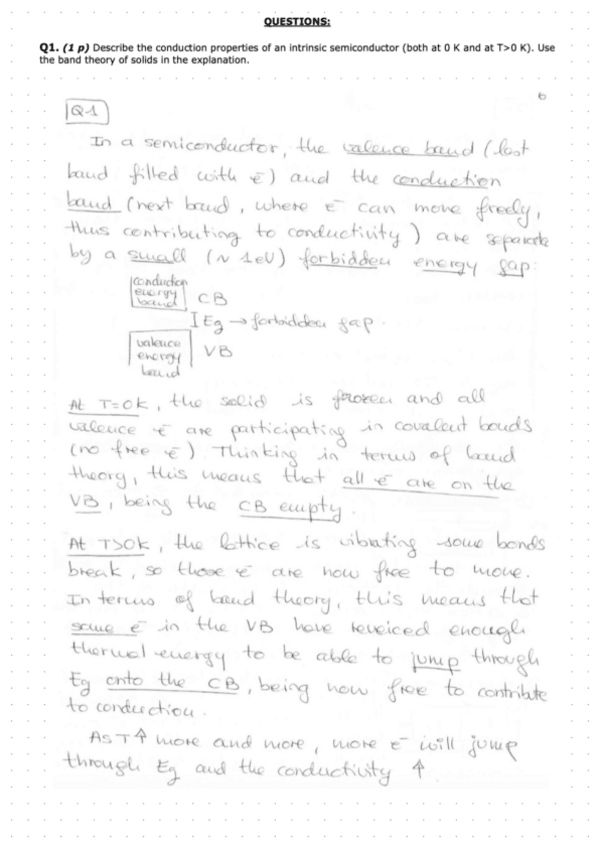 QUESTIONS:
Q1. (1 p) Describe the conduction properties of an intrinsic semiconductor (both at 0 K and at T>0 K). Use
the band theory of solids in the explanation.
6
Q1
In a semiconductor, the valence band (last
band filled with e⁻) and the conduction
band (next band, where e⁻ can move freely,
thus contributing to conductivity) are separate
by a small (~ 1eV) forbidden energy gap:
conduction
energy
band
CB
I Eg → forbidden gap.
valence
energy
band
VB
At T=0K, the solid is frozen and all
valence e⁻ are participating in covalent bonds
(no free e⁻) Thinking in terms of band
theory, this means that all e⁻ are on the
VB, being the CB empty.
At T>0K, the lattice is vibrating some bonds
break, so those e⁻ are now free to move.
In terms of band theory, this means that
some e⁻ in the VB have reveiced enough
thermal energy to be able to jump through
Eg onto the CB, being now free to contribute
to conduction.
As T↑ more and more, more e⁻ will jump
through Eg and the conductivity ↑